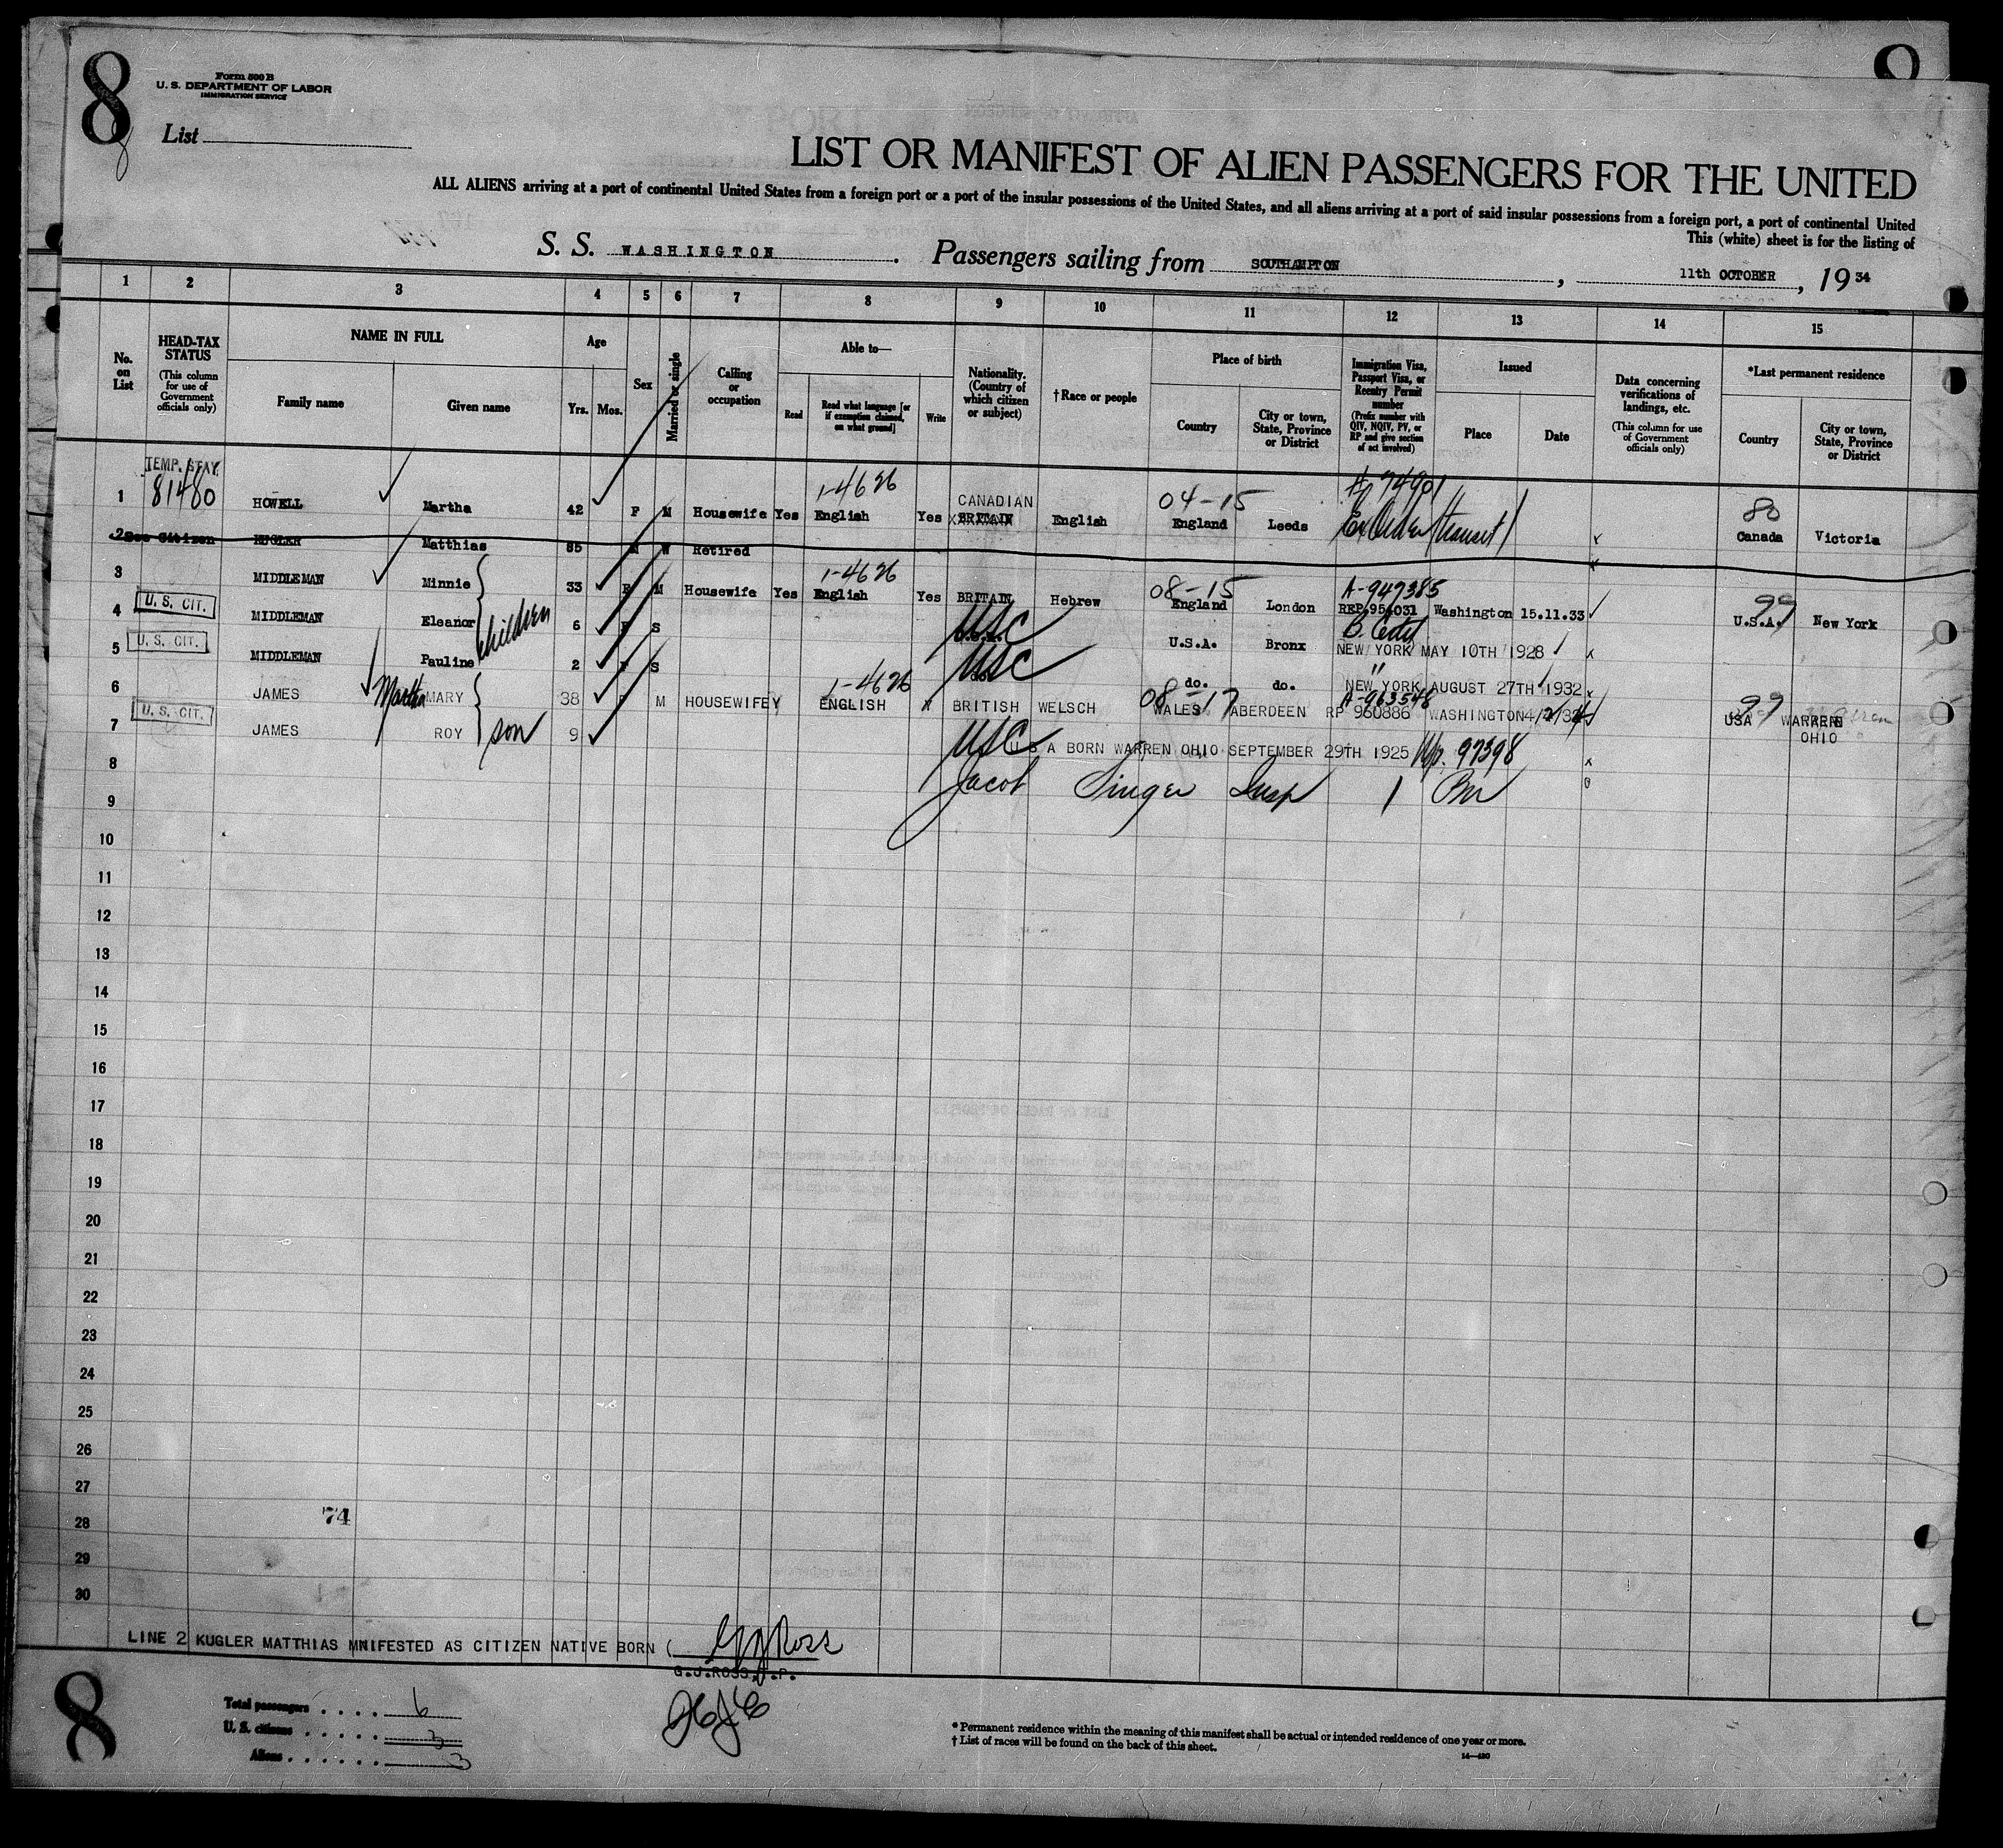 8
8
Form 500 B
U. S. DEPARTMENT OF LABOR
IMMIGRATION SERVICE
List
8
LIST OR MANIFEST OF ALIEN PASSENGERS FOR THE UNITED
ALL ALIENS arriving at a port of continental United States from a foreign port or a port of the insular possessions of the United States, and all aliens arriving at a port of said insular possessions from a foreign port, a port of continental United
This (white) sheet is for the listing of
S. S. WASHINGTON. Passengers sailing from SOUTHAMPTON, 11th OCTOBER, 19 34
1 2 3 4 5 6 7 8 9 10 11 12 13 14 15
No. on List
HEAD-TAX STATUS (This column for use of Government officials only)
NAME IN FULL
Family name Given name
Age
Yrs. Mos.
Sex
Married or single
Calling or occupation
Able to—
Read Read what language [or if exemption claimed, on what ground] Write
Nationality. (Country of which citizen or subject)
†Race or people
Place of birth
Country City or town, State, Province or District
Immigration Visa, Passport Visa, or Reentry Permit number (Prefix number with QIV, NQIV, PV, or RP and give section of act involved)
Issued
Place Date
Data concerning verifications of landings, etc. (This column for use of Government officials only)
*Last permanent residence
Country City or town, State, Province or District
TEMP. STAY. 1-4626 CANADIAN 04-15 A-74901 80
1 81480 HOWELL Martha 42 F M Housewife Yes English Yes BRITAIN English England Leeds transit Canada Victoria
2 See Citizen KUGLER Matthias 85 M W Retired
1-4626 08-15 A-947385 99
3 MIDDLEMAN Minnie 33 F M Housewife Yes English Yes BRITAIN Hebrew England London REP 954031 Washington 15.11.33 U.S.A. New York
4 U. S. CIT. MIDDLEMAN Eleanor children 6 F S USC U.S.A. Bronx NEW YORK MAY 10TH 1928
5 U. S. CIT. MIDDLEMAN Pauline 2 F S USC do. do. NEW YORK AUGUST 27TH 1932
1-4626 08-17 A-963546 99
6 JAMES Martha MARY 38 F M HOUSEWIFE Y ENGLISH Y BRITISH WELSCH WALES ABERDEEN RP 960886 WASHINGTON 4/2/34 USA WARREN OHIO
7 U. S. CIT. JAMES ROY son 9 USC U S A BORN WARREN OHIO SEPTEMBER 29TH 1925 97398
8 Jacob Singer Insp
9
10
11
12
13
14
15
16
17
18
19
20
21
22
23
24
25
26
27
28 74
29
30
LINE 2 KUGLER MATTHIAS MNIFESTED AS CITIZEN NATIVE BORN ( GJ Ross
G.J.ROSS, I.P.
8
Total passengers . . . . 6
U. S. citizens . . . . . 3
Aliens . . . . . . 3
* Permanent residence within the meaning of this manifest shall be actual or intended residence of one year or more.
† List of races will be found on the back of this sheet.
14—430